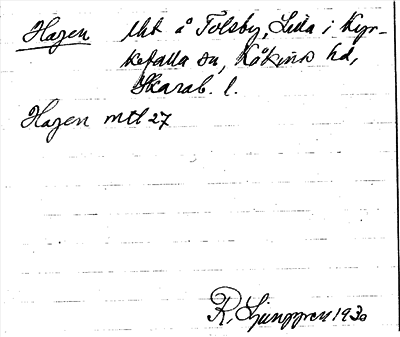 Hagen Uht å Tolsby, Lilla i Kyr-
kefalla sn, Kåkinds hd,
Skarab. l.
Hagen mtl 27
R. Ljunggren 1930